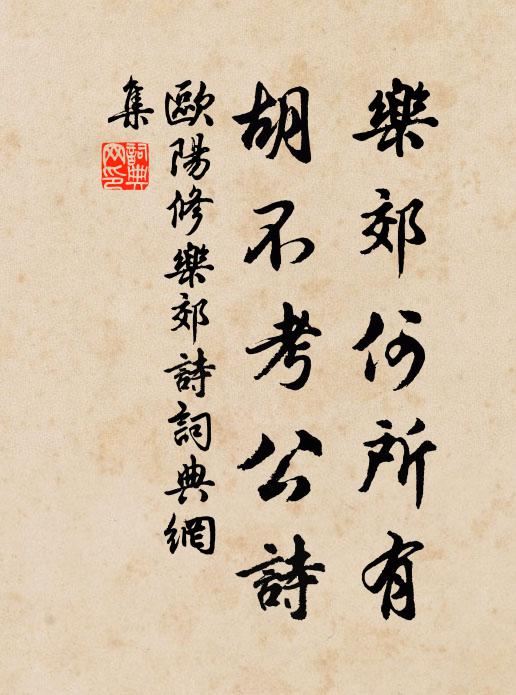 樂郊何所有
胡不考公詩
歐陽修樂郊詩詞典網
集
詞典網印